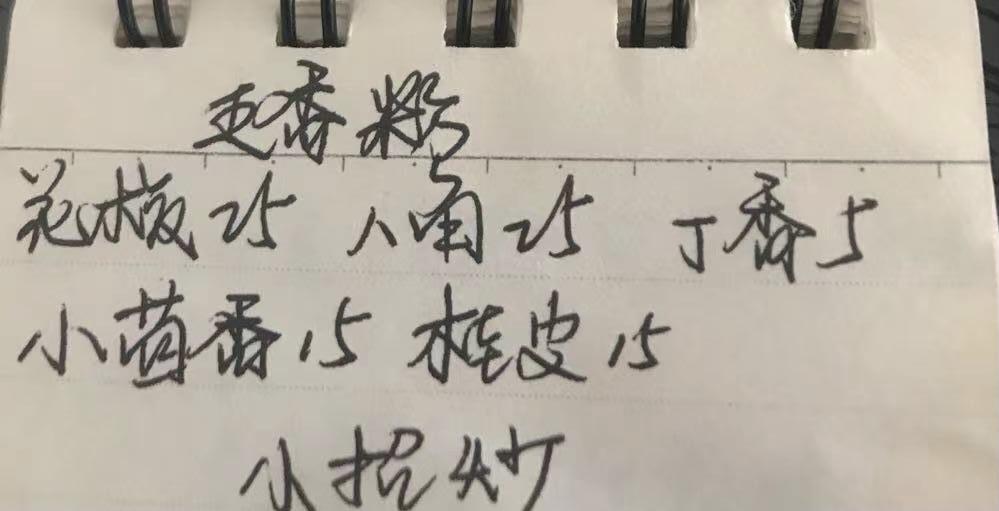 五香粉
花椒25 八角25 丁香5
小茴香15 桂皮15
小招炒